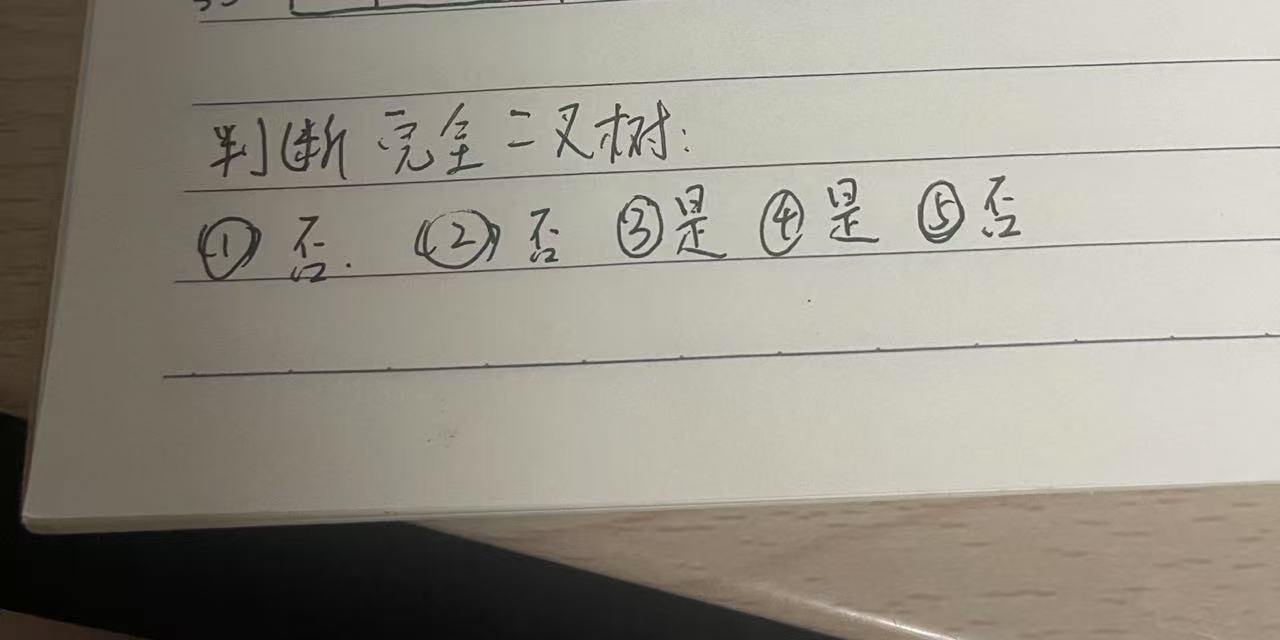 判断完全二叉树:
① 否. ② 否 ③是 ④是 ⑤否